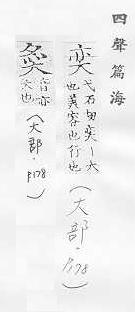 四聲篇海
奕 弋石切奕丨大
也美容也行也
(大部·P.178)
音亦
大也
(大部·P.178)